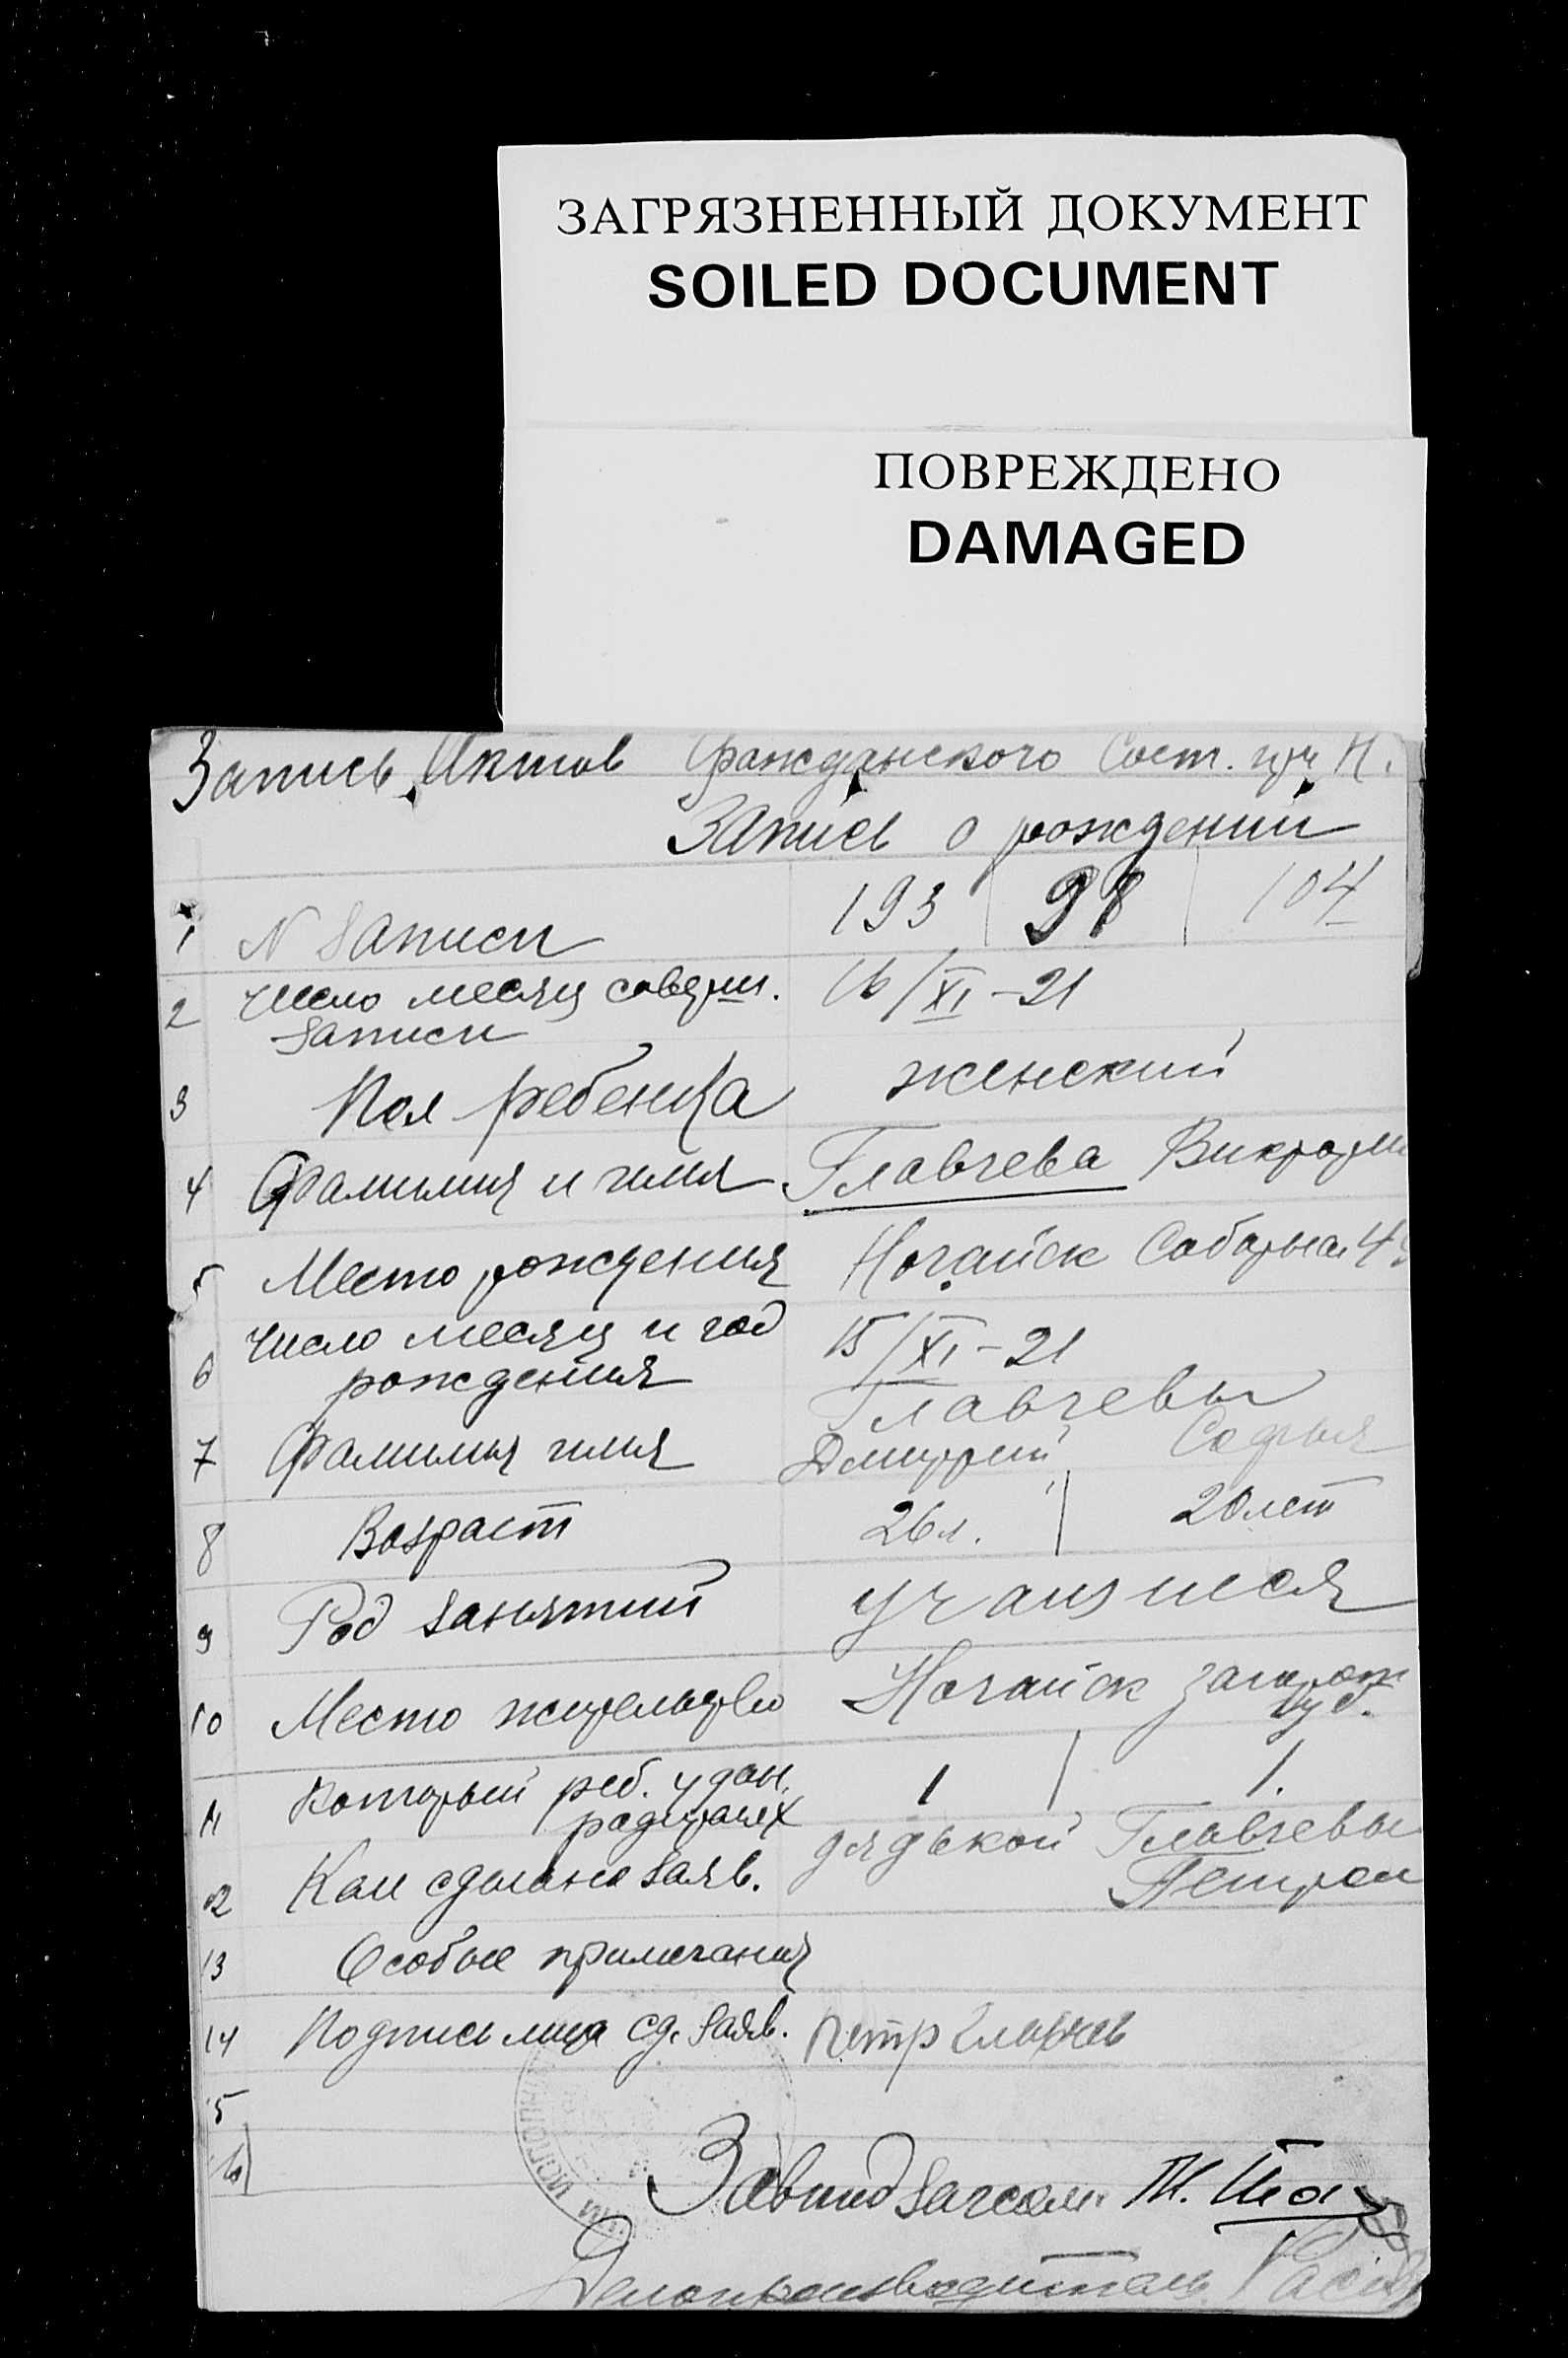 ЗАГРЯЗНЕННЫЙ ДОКУМЕНТ
SOILED DOCUMENT
ПОВРЕЖДЕНО
DAMAGED
Запись Актов Гражданского Сост. при Н.
Запись о рождении
1 N записи 193 | 98 | 104
2 Число месяц соверш. 16/XI-21
записи
3 Пол ребенка женский
4 Фамилия и имя Главчева
5 Место рождения Ногайск Соборная
6 Число месяц и год 15/XI-21
рождения
Главчевы
7 Фамилия имя Дмитрий Софья
8 Возраст 26 л. | 20 лет
9 Род занятий учащиеся
10 Место жительство Ногайск запорож
губ.
11 Который реб. у дан. 1 | 1.
родителях
12 Кем сделано заяв. дядькой Главчевы
Петром
13 Особые примечания
14 Подпись лица сд. заяв. Петр Главчев
15
16
Завподзагсом
Делопроизводитель